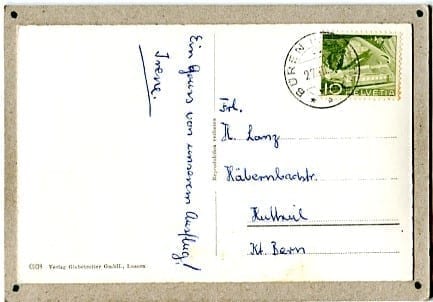 Ein Gruss von unserem Ausflug!
Irene.
BÜREN
10
HELVETIA
Frl.
H. Lanz
Häbernbachstr.
Huttwil
Kt. Bern
Reproduktion verboten
Verlag Globetrotter GmbH., Luzern